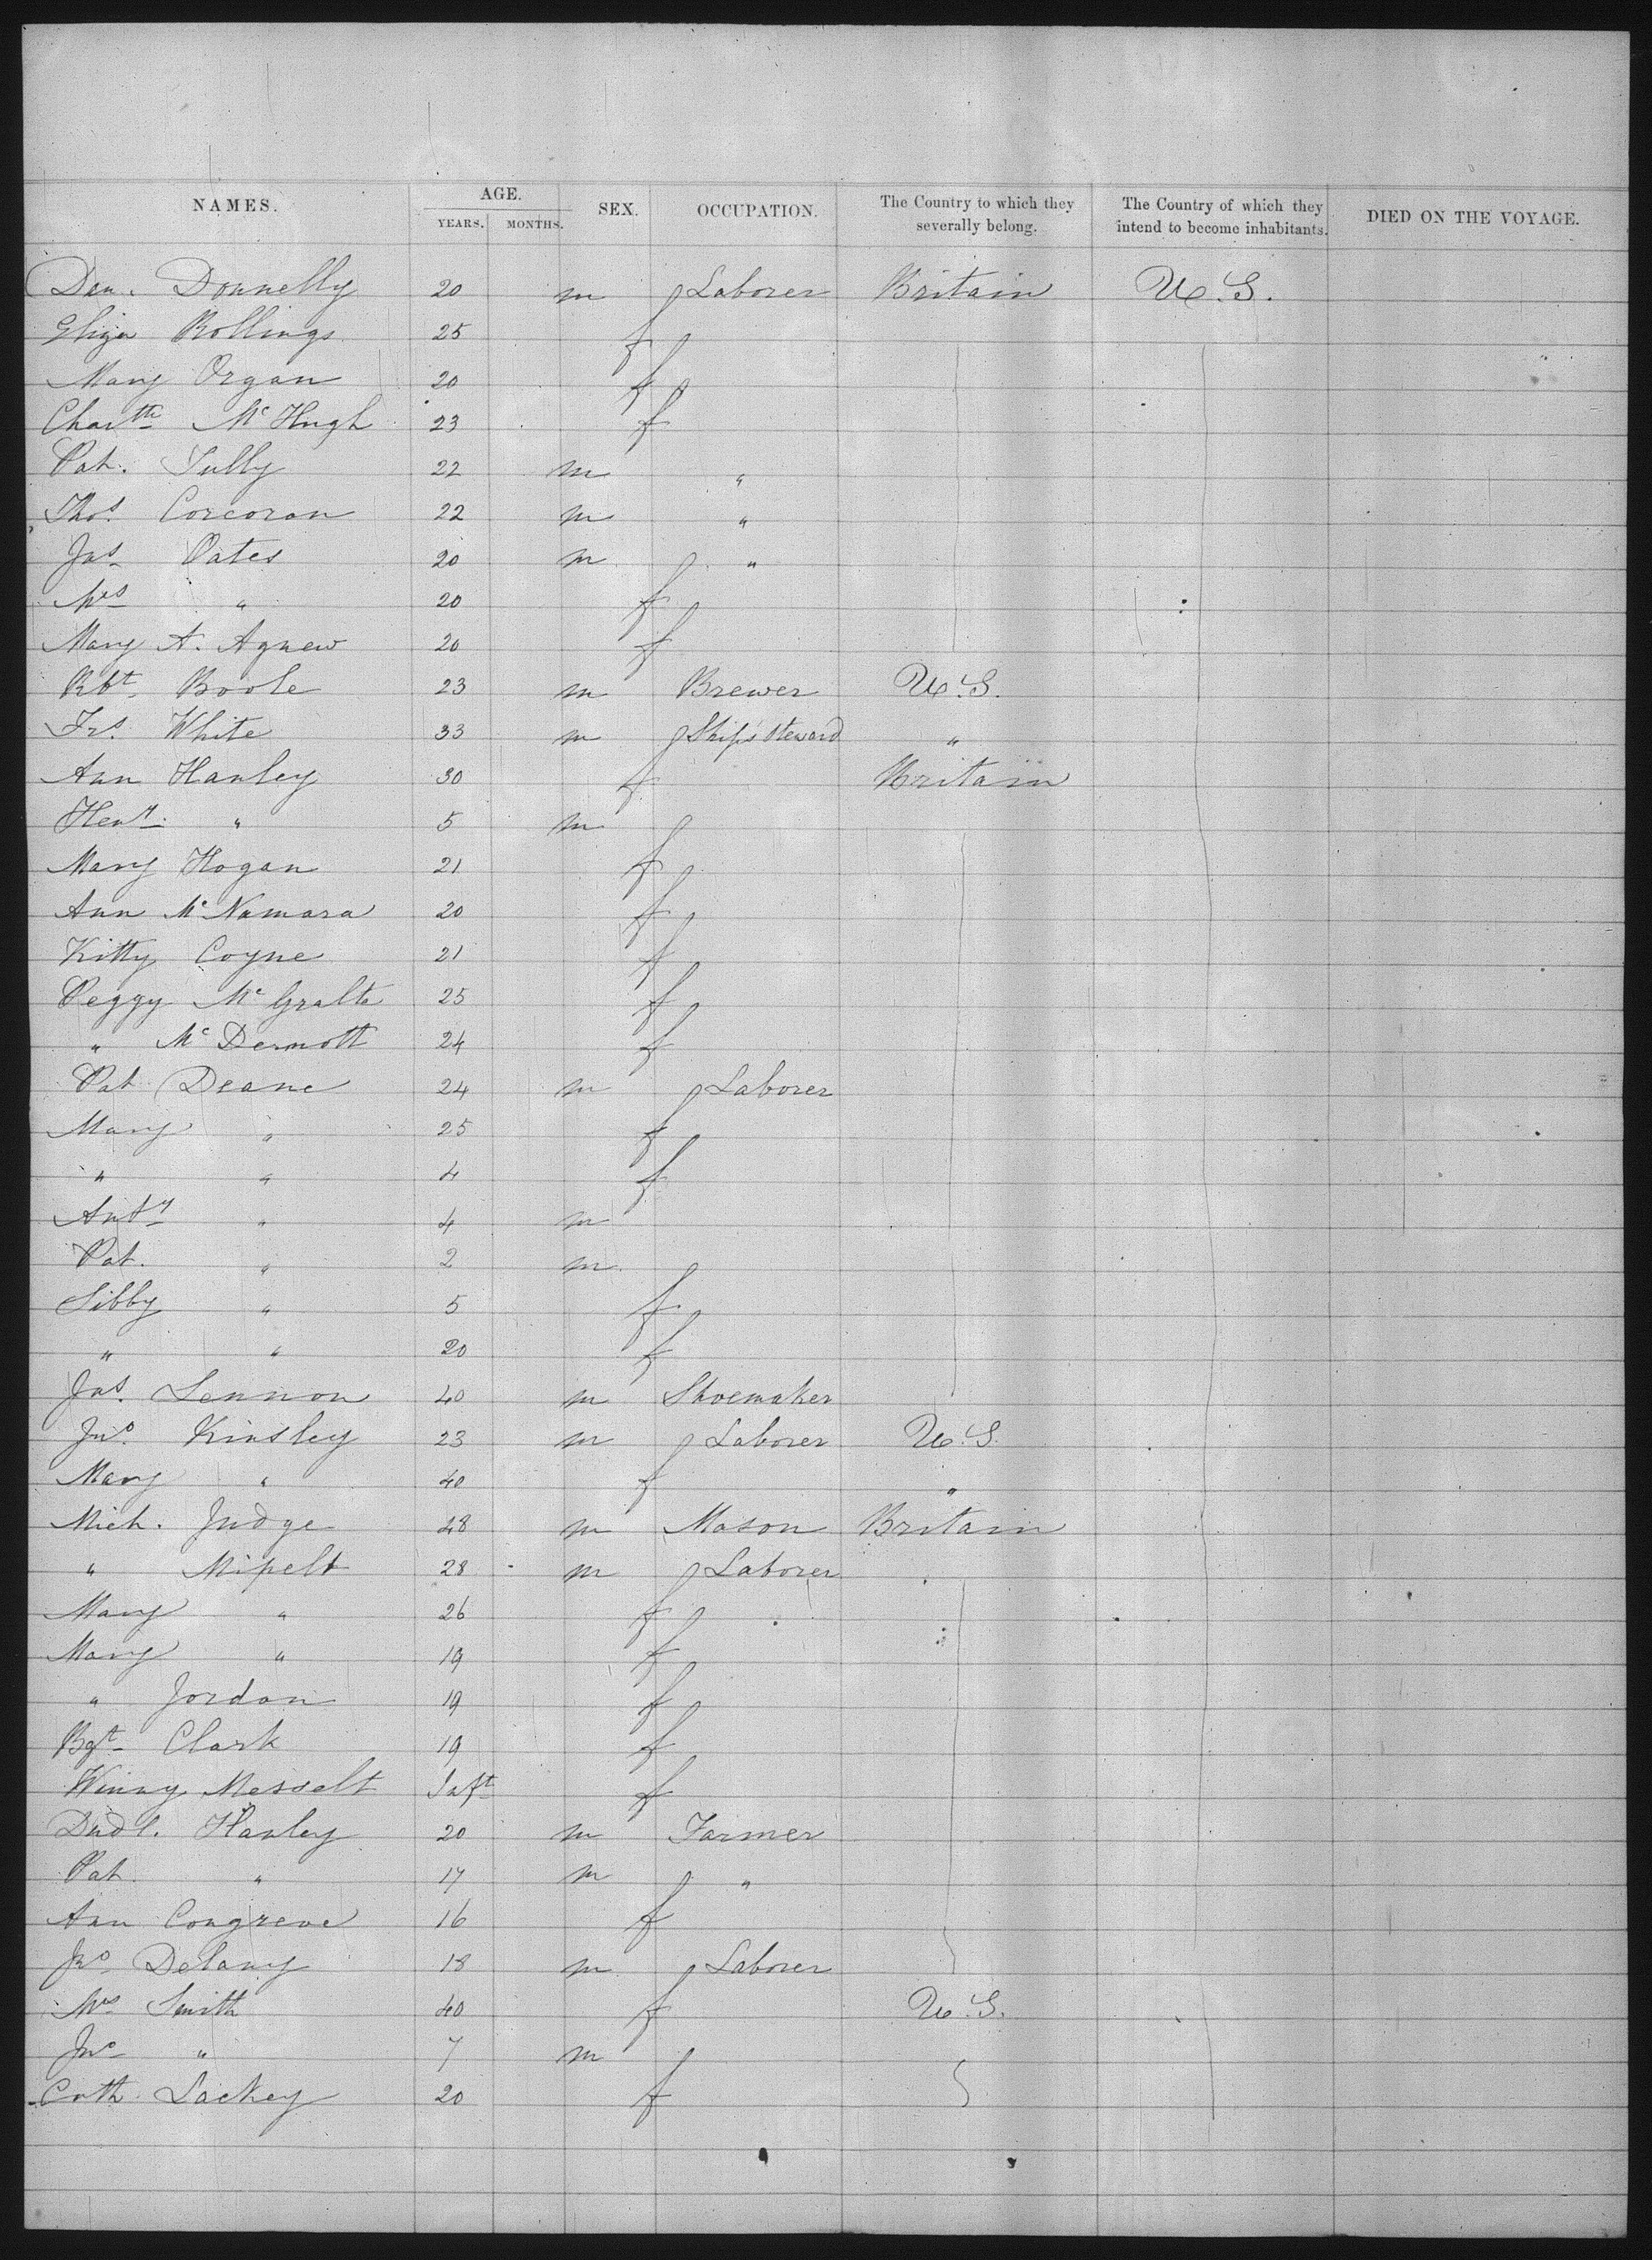 NAMES. AGE. YEARS. MONTHS. SEX. OCCUPATION. The Country to which they severally belong. The Country of which they intend to become inhabitants. DIED ON THE VOYAGE.
Dan. Donnelly 20 m Laborer Britain U.S.
Eliza Rollings 25 f
Mary Organ 20 f
Char^tte McHugh 23 f
Pat. Tully 22 m "
Thos. Corcoran 22 m "
Jas Oates 20 m "
Mrs " 20 f
Mary A. Agnew 20 f
Rbt Boole 23 m Brewer U.S.
Frs. White 33 m Ship's Steward "
Ann Hanley 30 f Britain
Heny " 5 m
Mary Hogan 21 f
Ann McNamara 20 f
Kitty Coyne 21 f
Peggy 25 f
" McDermott 24 f
Pat Deane 24 m Laborer
Mary " 25 f
" " 4 f
Anty " 4 m
Pat. " 2 m
Sibby " 5 f
" " 20 f
Jas. Lennon 40 m Shoemaker
Jno. Kinsley 23 m Laborer U.S.
Mary " 40 f "
Mich. Judge 48 m Mason Britain
" Mipelt 28 m Laborer
Mary " 26 f
Mary " 19 f
" Jordan 19 f
Bgt Clark 19 f
Winny Messelt Inft f
Dudl. Hanley 20 m Farmer
Pat. " 17 m "
Ann Congreve 16 f
Jno Delany 18 m Laborer
Mrs Smith 40 f U.S.
Jno " 7 m
Cath Lackey 20 f